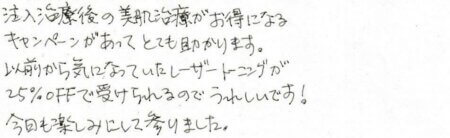 注入治療後の美肌治療がお得になる
キャンペーンがあってとても助かります。
以前から気になっていたレーザートーニングが
25%OFFで受けられるのでうれしいです!
今回も楽しみにして参りました。